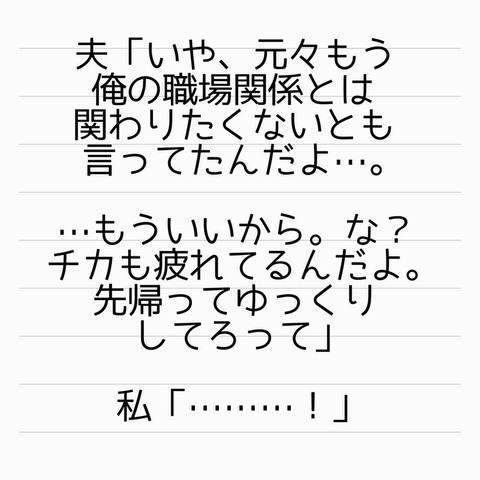 夫「いや、元々もう
俺の職場関係とは
関わりたくないとも
言ってたんだよ…。
…もういいから。な？
チカも疲れてるんだよ。
先帰ってゆっくり
してろって」
私「………！」